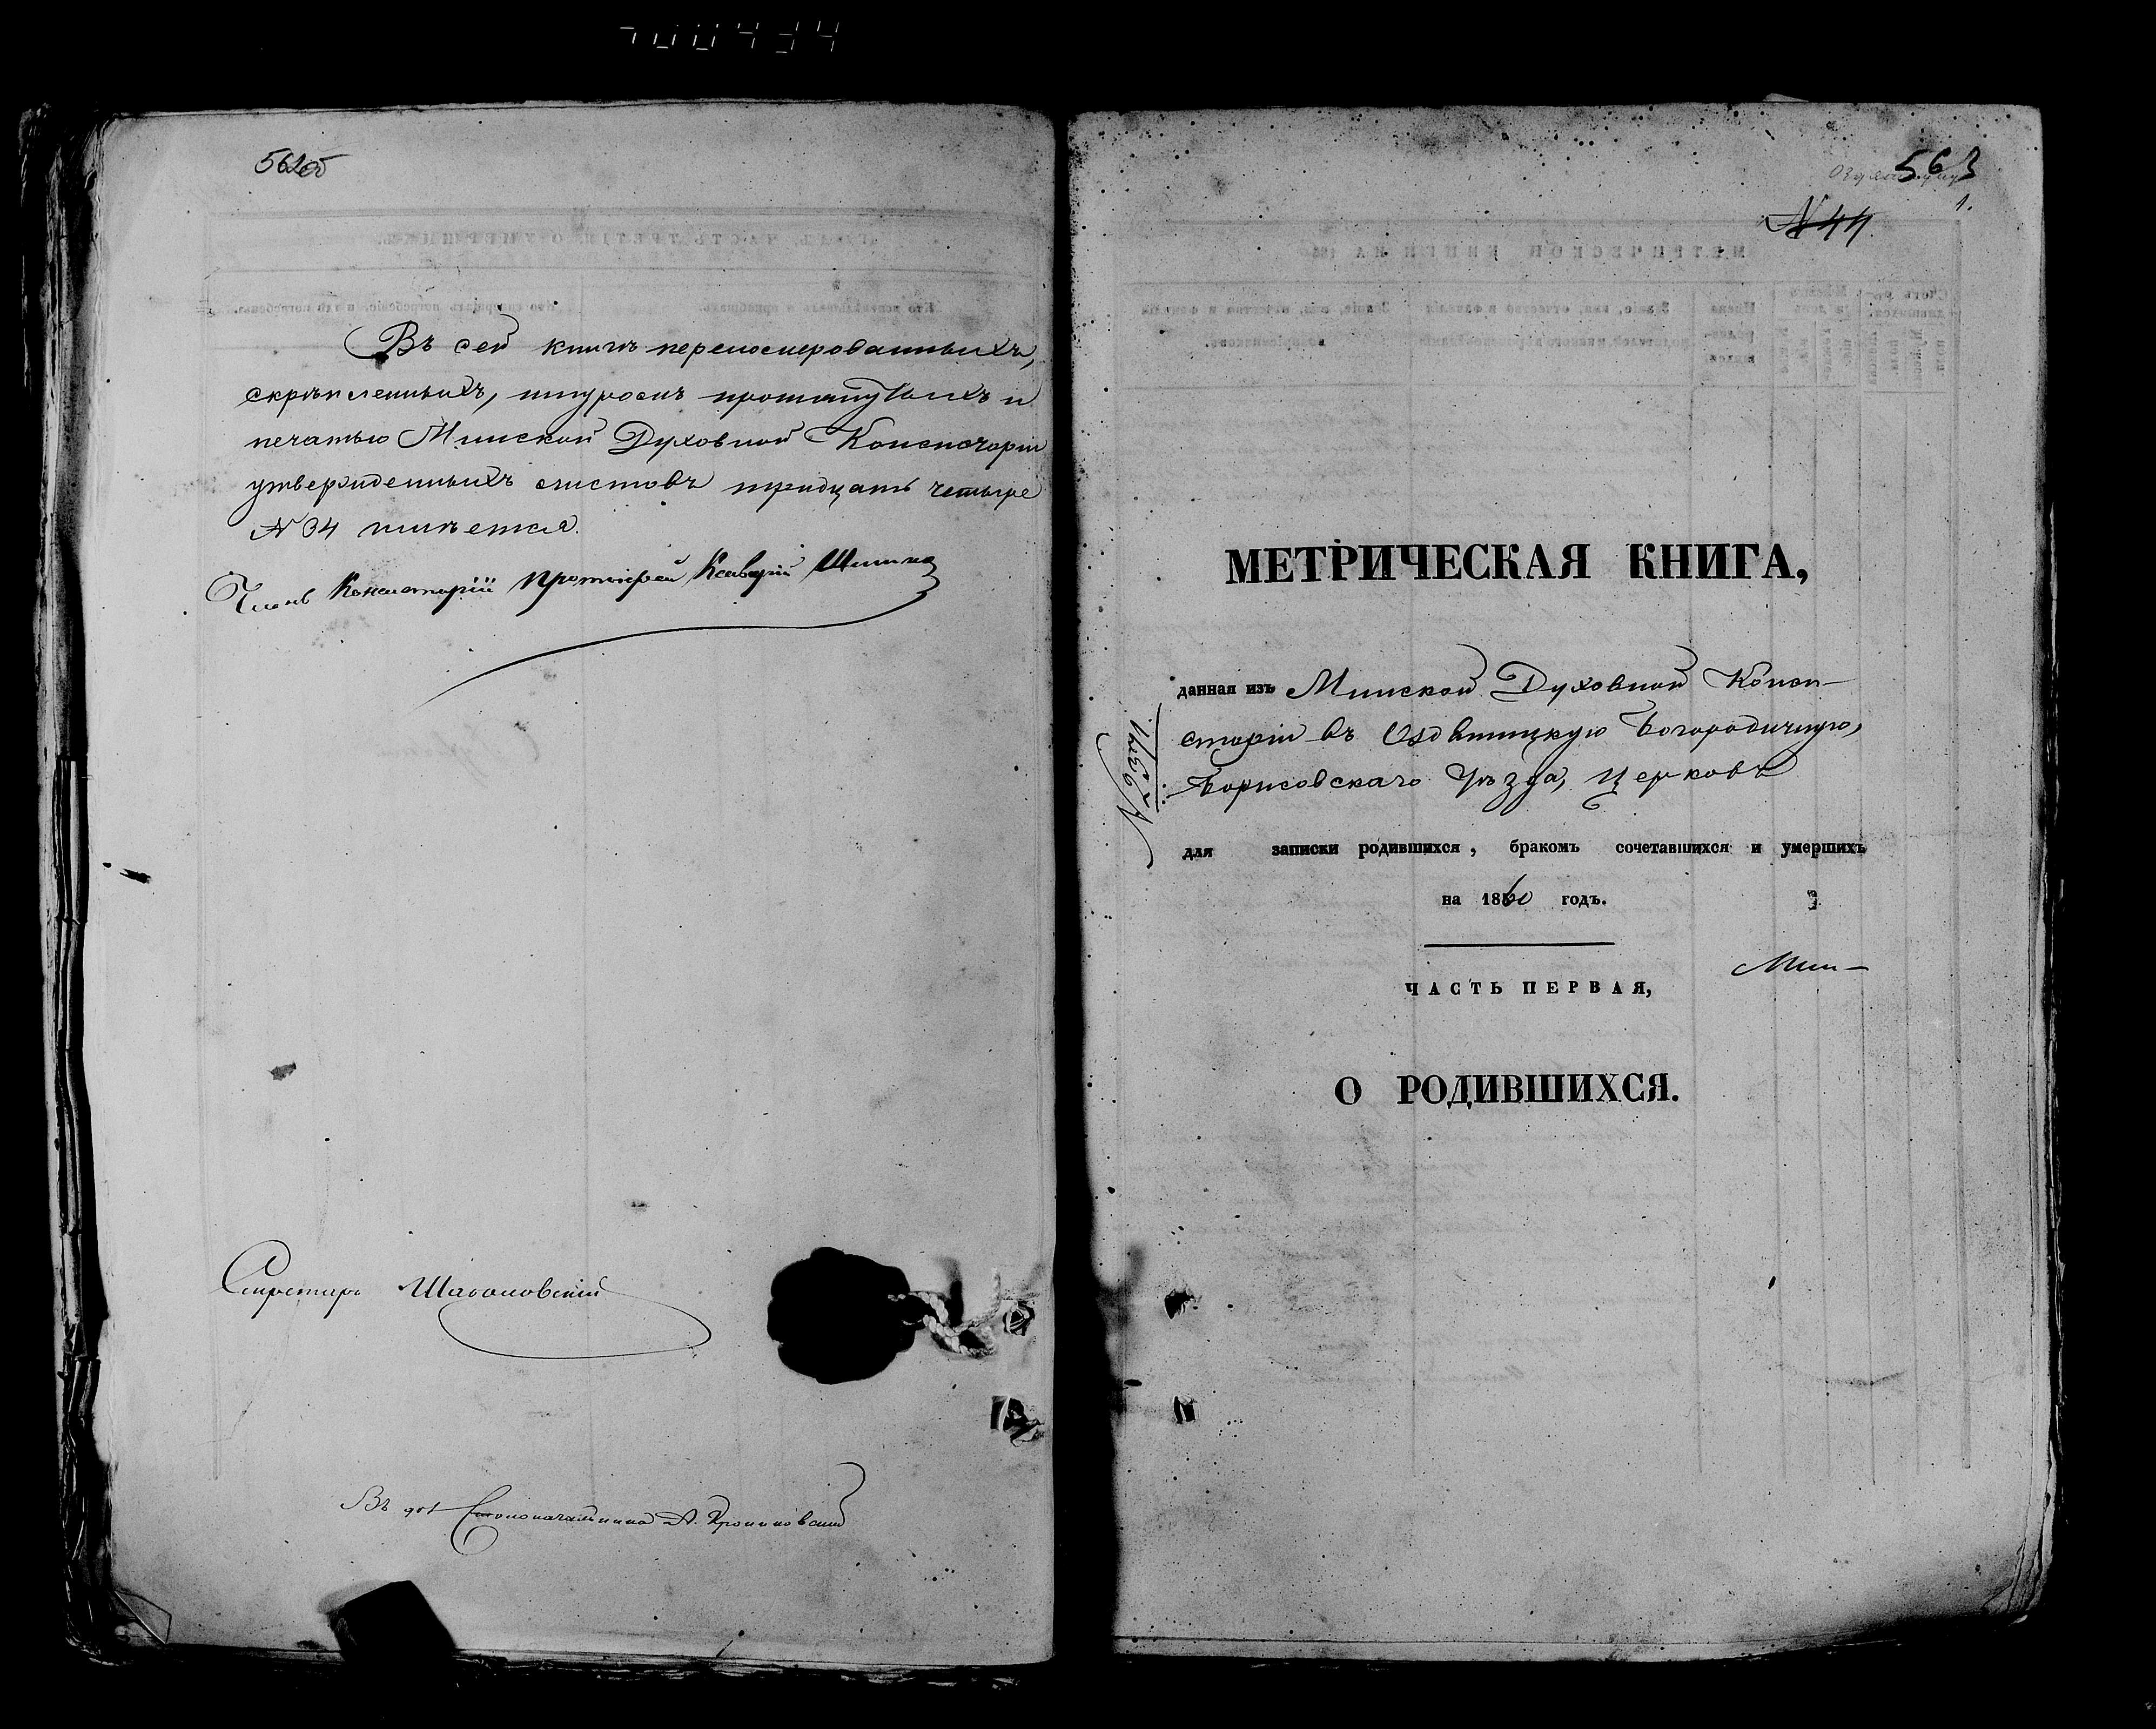 562об
Въ сей книгѣ перенумерованныхъ,
скрѣпленныхъ, шнуромъ протянутыхъ и
печатью Минской Духовной Консисторіи
утвержденныхъ листовъ тридцать четыре
№ 34 имѣется.
Членъ Консисторіи Протоіерей
Секретарь
Въ Столоначальника А.
563
1.
№ 44
МЕТРИЧЕСКАЯ КНИГА,
данная изъ Минской Духовной Конси-
сторіи въ Оздятицкую Богородичную,
Борисовскаго Уѣзда, церковь
для записки родившихся, бракомъ сочетавшихся и умершихъ
на 1860 годъ.
Мин-
ЧАСТЬ ПЕРВАЯ,
О РОДИВШИХСЯ.